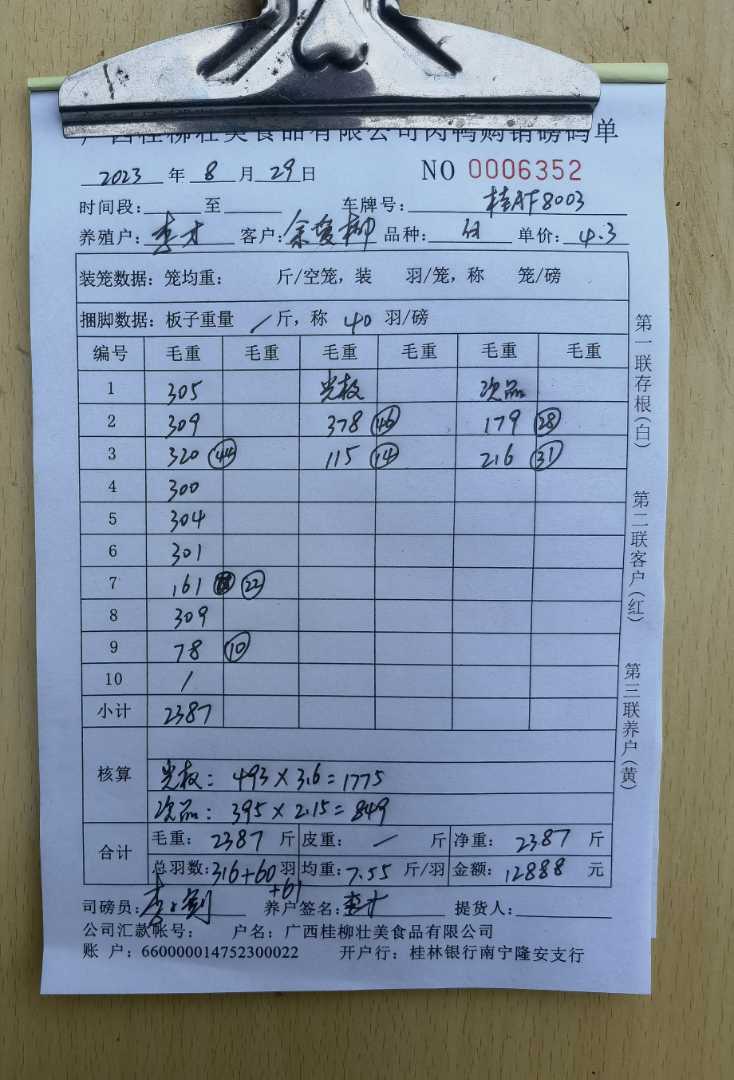 广西桂柳壮美食品有限公司肉鸭购销磅码单
2023 年 8 月 29 日 NO 0006352
时间段: 至 车牌号: 桂AF8003
养殖户: 李才 客户: 余爱柳 品种: 白 单价: 4.3
装笼数据: 笼均重: 斤/空笼, 装 羽/笼, 称 笼/磅
捆脚数据: 板子重量 / 斤, 称 40 羽/磅
编号 毛重 毛重 毛重 毛重 毛重 毛重
1 305 光板 次品
2 309 378 46 179 28
3 320 44 115 14 216 31
4 300
5 304
6 301
7 161 22
8 309
9 78 10
10 /
小计 2387
核算
光板: 493×3.6=1775
次品: 395×2.15=849
合计 毛重: 2387 斤 皮重: / 斤 净重: 2387 斤
总羽数: 316+60 羽 均重: 7.55 斤/羽 金额: 12888 元
+61
司磅员: 养户签名: 李才 提货人:
公司汇款帐号: 户名: 广西桂柳壮美食品有限公司
账 户: 660000014752300022 开户行: 桂林银行南宁隆安支行
第一联存根(白) 第二联客户(红) 第三联养户(黄)